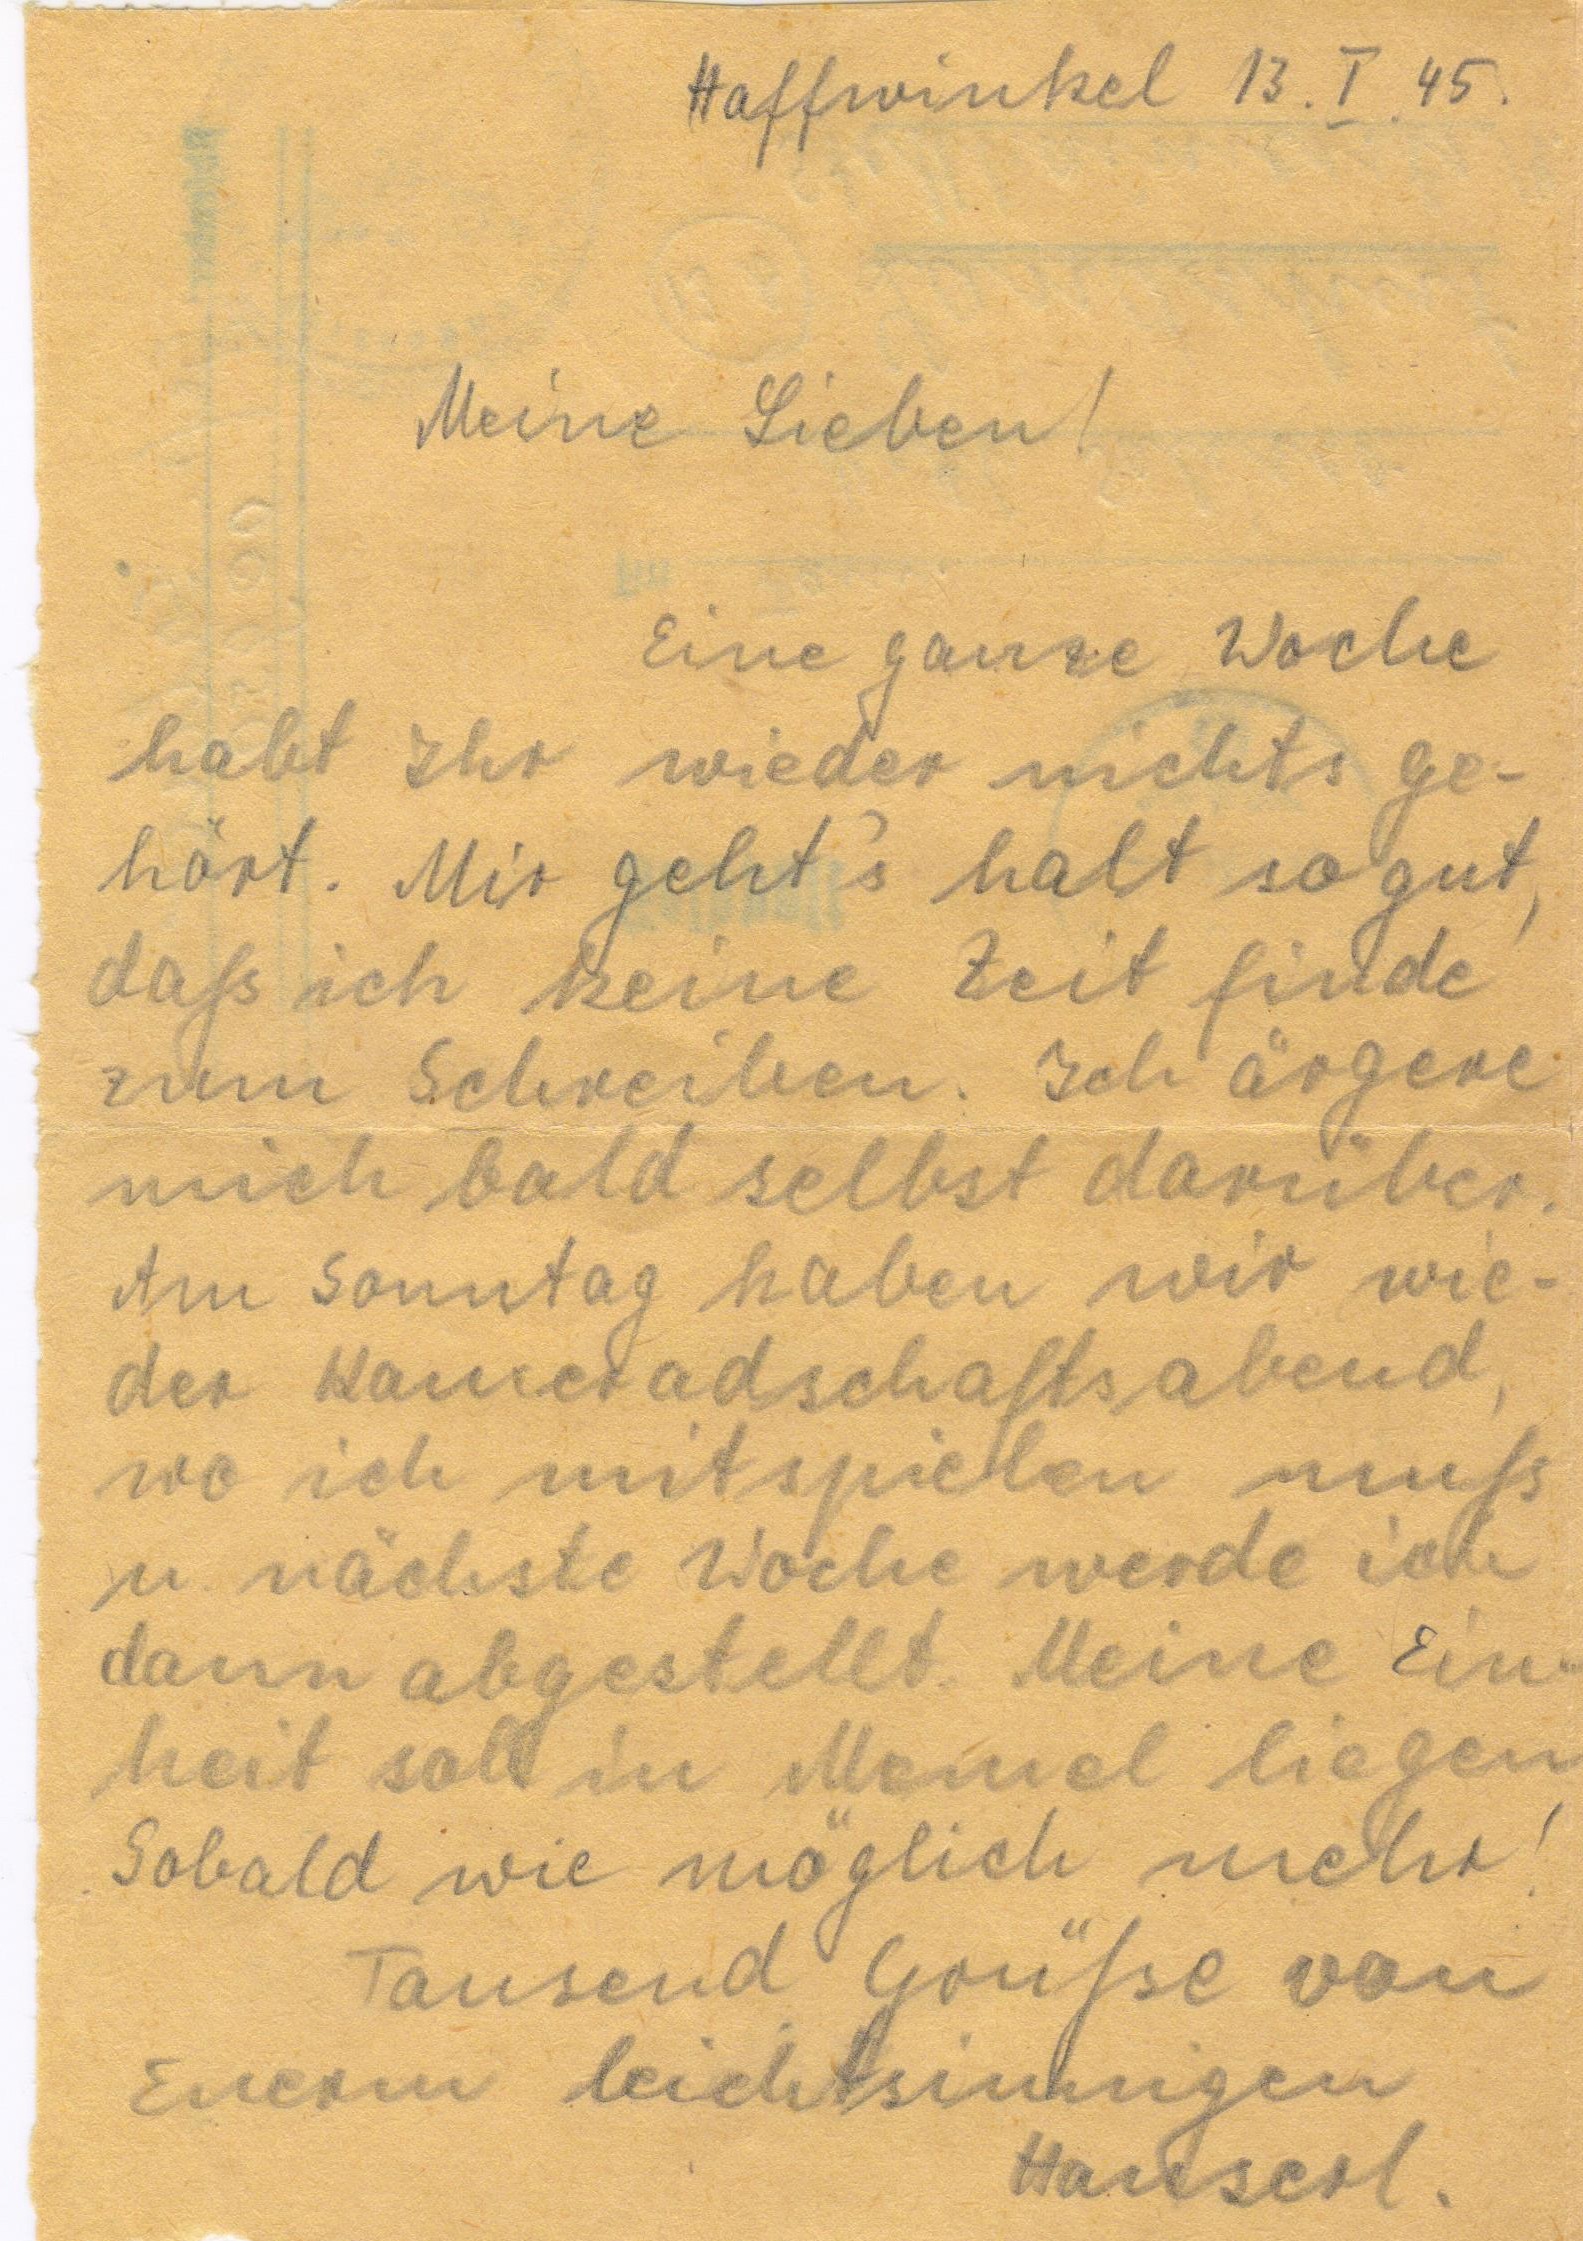 Haffwinkel 13. I. 45.
Meine Lieben!
Eine ganze Woche
habt Ihr wieder nichts ge-
hört. Mir geht's halt so gut,
daß ich keine Zeit finde
zum Schreiben. Ich ärgere
mich bald selbst darüber.
Am Sonntag haben wir wie-
der Kameradschaftsabend,
wo ich mitspielen muß
u. nächste Woche werde ich
dann abgestellt. Meine Ein-
heit soll in Memel liegen
Sobald wie möglich mehr!
Tausend Grüße von
Euerm leichtsinnigen
Hanserl.